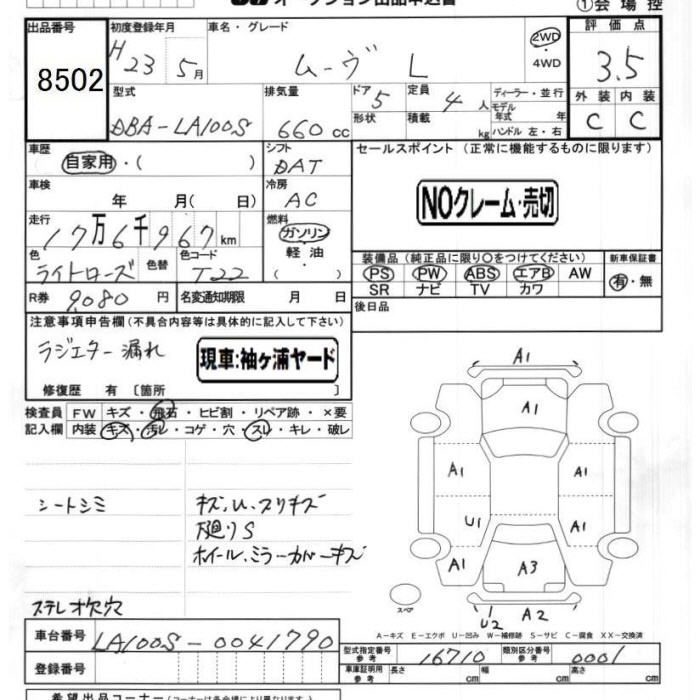 オークション出品申込書
①会場控
出品番号 8502
初度登録年月 H23 5月
車名・グレード ムーヴ L
2WD
4WD
評価点 3.5
型式 DBA-LA100S
排気量 660 cc
ドア 5
形状
定員 4 人
積載 kg
ディーラー・並行
モデル年式 年
ハンドル 左・右
外装 C
内装 C
車歴 自家用・( )
シフト DAT
セールスポイント (正常に機能するものに限ります)
NOクレーム・売切
車検 年 月( 日)
冷房 AC
走行 17万6千967km
燃料 ガソリン
軽油
( )
色 ライトローズ
色替
色コード T22
装備品(純正品に限り○をつけてください)
PS PW ABS エアB AW
SR ナビ TV カワ
新車保証書
有・無
R券 9,080 円
名変通知期限 月 日
後日品
注意事項申告欄(不具合内容等は具体的に記入して下さい)
ラジエター漏れ
現車:袖ヶ浦ヤード
修復歴 有〔箇所 〕
検査員記入欄
FW キズ・飛石・ヒビ割・リペア跡・×要
内装 キズ・汚レ・コゲ・穴・スレ・キレ・破レ
シートシミ
キズ、U、スリキズ
下廻りS
ホイール、ミラーカバーキズ
ステレオ欠穴
A1
A1
A1 A1
U1 A1
A1 A3 A1
スペア
U2 A2
A-キズ E-エクボ U-凹み W-補修跡 S-サビ C-腐食 XX-交換済
車台番号 LA100S-0041790
登録番号
型式指定番号 参考 16710
類別区分番号 参考 0001
車庫証明用 参考 長さ cm 幅 cm 高さ cm
希望出品コーナー(コーナーは各会場により異なります)